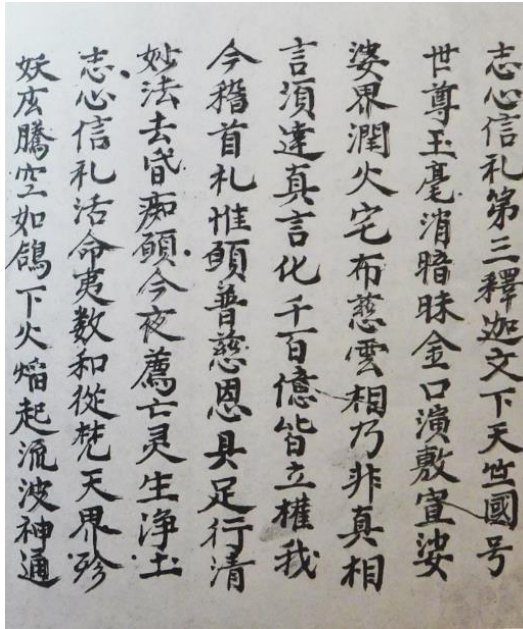 志心信礼第三釋迦文下天竺國号
世尊玉毫消暗昧金口演敷宣娑
婆界潤火宅布慈雲相乃非真相
言須達真言化千百億皆立權我
今稽首礼惟願普慈恩具足行清
妙法去昏痴願今夜薦亡灵生浄土
志心信礼活命夷数和從梵天界殄
妖危騰空如鴿下火焰起流波神通